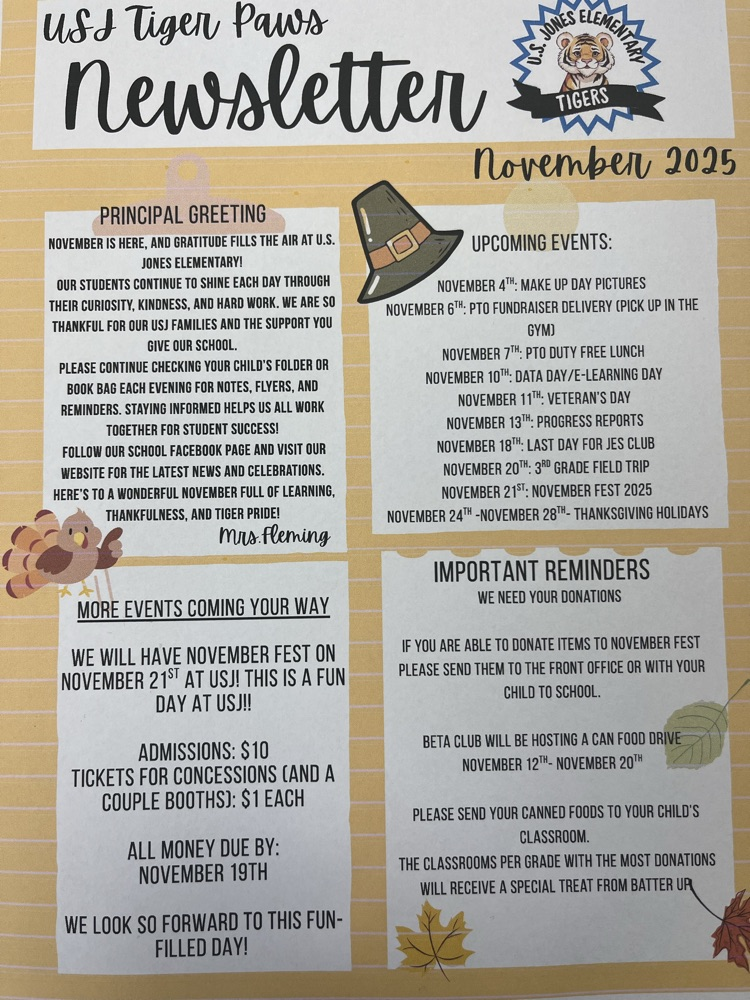 USJ Tiger Paws
Newsletter
U.S. JONES ELEMENTARY
TIGERS
November 2025
PRINCIPAL GREETING
NOVEMBER IS HERE, AND GRATITUDE FILLS THE AIR AT U.S.
JONES ELEMENTARY!
OUR STUDENTS CONTINUE TO SHINE EACH DAY THROUGH
THEIR CURIOSITY, KINDNESS, AND HARD WORK. WE ARE SO
THANKFUL FOR OUR USJ FAMILIES AND THE SUPPORT YOU
GIVE OUR SCHOOL.
PLEASE CONTINUE CHECKING YOUR CHILD'S FOLDER OR
BOOK BAG EACH EVENING FOR NOTES, FLYERS, AND
REMINDERS. STAYING INFORMED HELPS US ALL WORK
TOGETHER FOR STUDENT SUCCESS!
FOLLOW OUR SCHOOL FACEBOOK PAGE AND VISIT OUR
WEBSITE FOR THE LATEST NEWS AND CELEBRATIONS.
HERE'S TO A WONDERFUL NOVEMBER FULL OF LEARNING,
THANKFULNESS, AND TIGER PRIDE!
Mrs.Fleming
UPCOMING EVENTS:
NOVEMBER 4TH: MAKE UP DAY PICTURES
NOVEMBER 6TH: PTO FUNDRAISER DELIVERY (PICK UP IN THE
GYM)
NOVEMBER 7TH: PTO DUTY FREE LUNCH
NOVEMBER 10TH: DATA DAY/E-LEARNING DAY
NOVEMBER 11TH: VETERAN'S DAY
NOVEMBER 13TH: PROGRESS REPORTS
NOVEMBER 18TH: LAST DAY FOR JES CLUB
NOVEMBER 20TH: 3RD GRADE FIELD TRIP
NOVEMBER 21ST: NOVEMBER FEST 2025
NOVEMBER 24TH -NOVEMBER 28TH- THANKSGIVING HOLIDAYS
MORE EVENTS COMING YOUR WAY
WE WILL HAVE NOVEMBER FEST ON
NOVEMBER 21ST AT USJ! THIS IS A FUN
DAY AT USJ!!
ADMISSIONS: $10
TICKETS FOR CONCESSIONS (AND A
COUPLE BOOTHS): $1 EACH
ALL MONEY DUE BY:
NOVEMBER 19TH
WE LOOK SO FORWARD TO THIS FUN-
FILLED DAY!
IMPORTANT REMINDERS
WE NEED YOUR DONATIONS
IF YOU ARE ABLE TO DONATE ITEMS TO NOVEMBER FEST
PLEASE SEND THEM TO THE FRONT OFFICE OR WITH YOUR
CHILD TO SCHOOL.
BETA CLUB WILL BE HOSTING A CAN FOOD DRIVE
NOVEMBER 12TH- NOVEMBER 20TH
PLEASE SEND YOUR CANNED FOODS TO YOUR CHILD'S
CLASSROOM.
THE CLASSROOMS PER GRADE WITH THE MOST DONATIONS
WILL RECEIVE A SPECIAL TREAT FROM BATTER UP